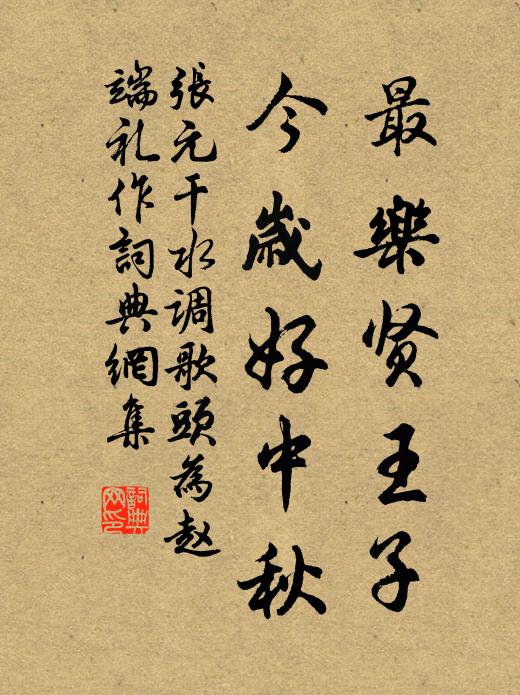 最樂贤王子
今歲好中秋
張元干水调歌頭為赵
端礼作詞典網集
詞典
网印